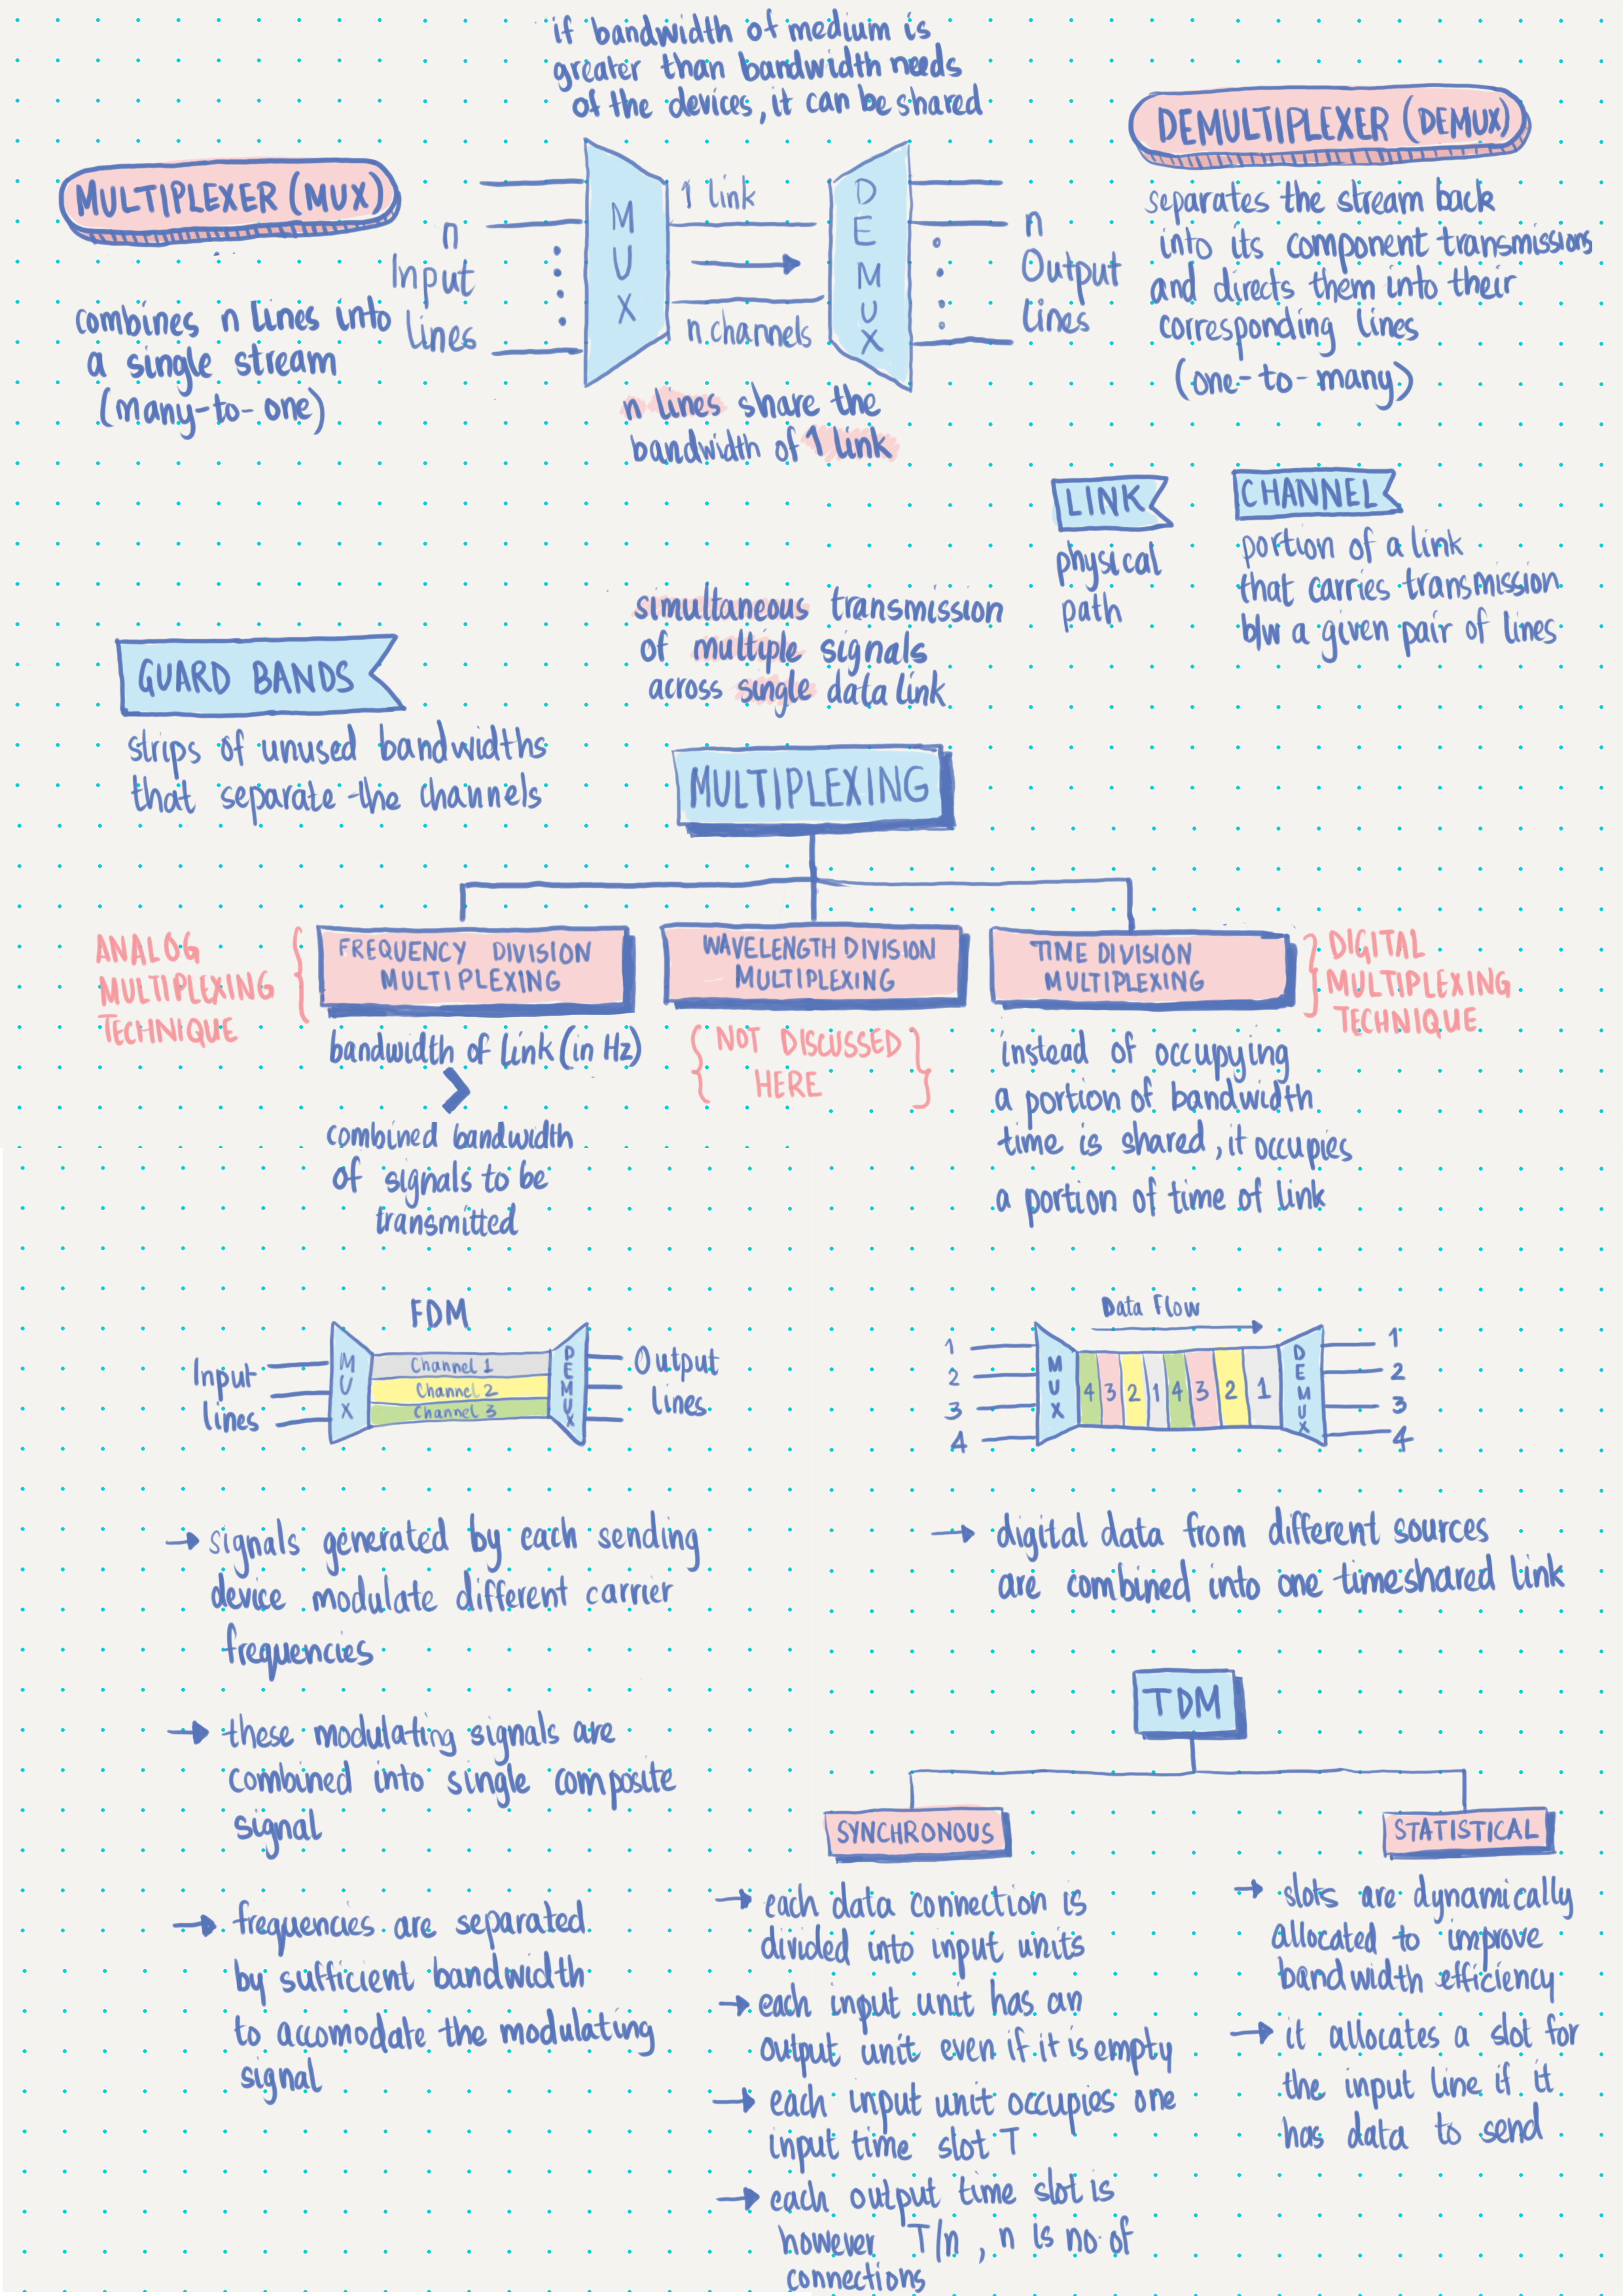 if bandwidth of medium is
greater than bandwidth needs
of the devices, it can be shared
MULTIPLEXER (MUX)
combines n lines into
a single stream
(many-to-one)
n
Input
lines
MUX
1 link
n channels
DEMUX
n
Output
lines
n lines share the
bandwidth of 1 link
DEMULTIPLEXER (DEMUX)
separates the stream back
into its component transmissions
and directs them into their
corresponding lines
(one-to-many)
LINK
physical
path
CHANNEL
portion of a link
that carries transmission
b/w a given pair of lines
GUARD BANDS
strips of unused bandwidths
that separate the channels
simultaneous transmission
of multiple signals
across single data link
MULTIPLEXING
ANALOG
MULTIPLEXING
TECHNIQUE
FREQUENCY DIVISION
MULTIPLEXING
bandwidth of link (in Hz)
>
combined bandwidth
of signals to be
transmitted
WAVELENGTH DIVISION
MULTIPLEXING
NOT DISCUSSED
HERE
TIME DIVISION
MULTIPLEXING
DIGITAL
MULTIPLEXING
TECHNIQUE
instead of occupying
a portion of bandwidth
time is shared, it occupies
a portion of time of link
FDM
Input
lines
MUX
Channel 1
Channel 2
Channel 3
DEMUX
Output
lines
→ signals generated by each sending
device modulate different carrier
frequencies
→ these modulating signals are
combined into single composite
signal
→ frequencies are separated
by sufficient bandwidth
to accomodate the modulating
signal
Data Flow
1
2
3
4
MUX
4 3 2 1 4 3 2 1
DEMUX
1
2
3
4
→ digital data from different sources
are combined into one timeshared link
TDM
SYNCHRONOUS
→ each data connection is
divided into input units
→ each input unit has an
output unit even if it is empty
→ each input unit occupies one
input time slot T
→ each output time slot is
however T/n, n is no. of
connections
STATISTICAL
→ slots are dynamically
allocated to improve
bandwidth efficiency
→ it allocates a slot for
the input line if it
has data to send